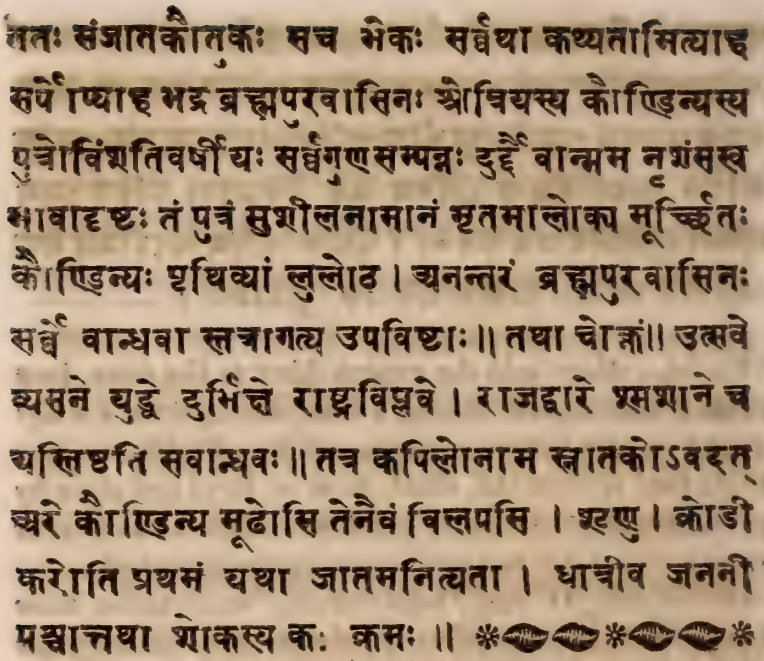 ततः संजातकौतुकः सच भेकः सर्व्वथा कथ्यतामित्याह
सर्पोप्याह भद्र ब्रह्मपुरवासिनः श्रोत्रियस्य कौण्डिन्यस्य
पुत्रोविंशतिवर्षीयः सर्व्वगुणसम्पन्नः दुर्द्दैवान्मम नृशंसस्व
भावादृष्टः तं पुत्रं सुशीलनामानं मृतमालोक्य मूर्च्छितः
कौण्डिन्यः पृथिव्यां लुलोठ । अनन्तरं ब्रह्मपुरवासिनः
सर्व्वे वान्धवा स्तत्रागत्य उपविष्टाः ॥ तथा चोक्तं ॥ उत्सवे
व्यसने युद्धे दुर्भिक्षे राष्ट्रविप्लवे । राजद्वारे श्मशाने च
यस्तिष्ठति सवान्धवः ॥ तत्र कपिलोनाम स्नातकोऽवदत्
अरे कौण्डिन्य मूढोसि तेनैवं विलपसि । शृणु । क्रोडी
करोति प्रथमं यथा जातमनित्यता । धात्रीव जननी
पश्चात्तथा शोकस्य कः क्रमः ॥